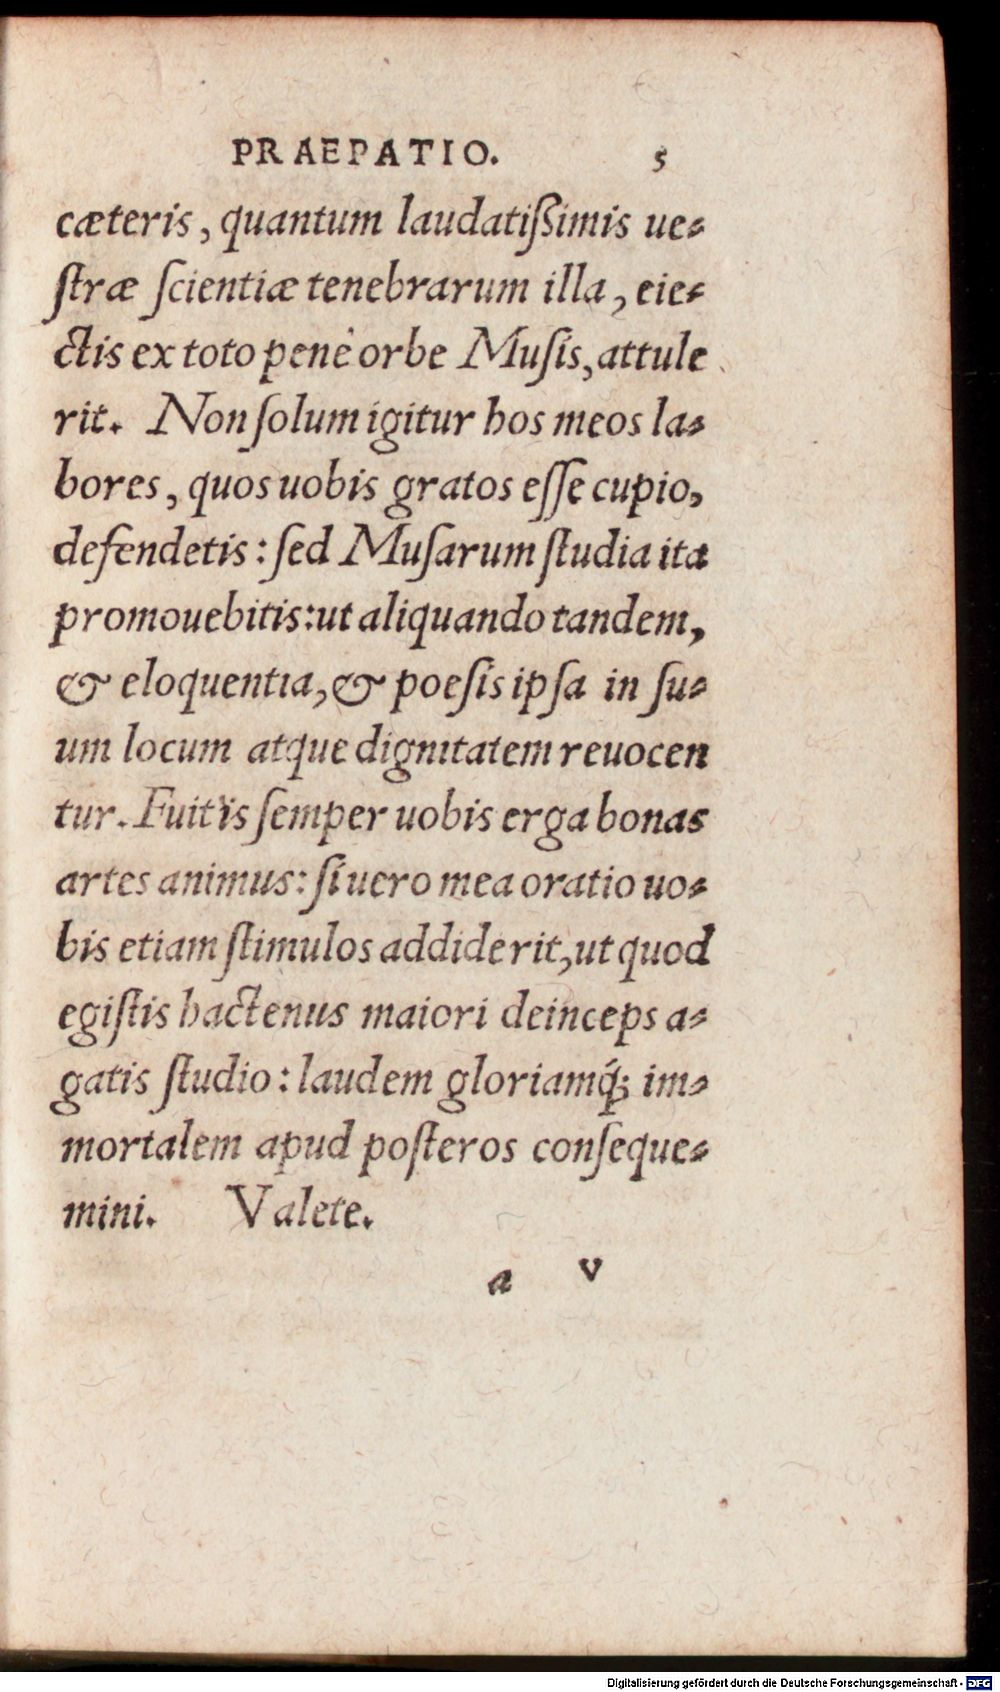 PRAEPATIO. 5
cæteris, quantum laudatißimis ue-
ſtræ ſcientiæ tenebrarum illa, eie-
ctis ex toto penè orbe Muſis, attule
rit. Non ſolum igitur hos meos la-
bores, quos uobis gratos eſſe cupio,
defendetis: ſed Muſarum ſtudia ita
promouebitis: ut aliquando tandem,
& eloquentia, & poeſis ipſa in ſu-
um locum atque dignitatem reuocen
tur. Fuit is ſemper uobis erga bonas
artes animus: ſi uero mea oratio uo-
bis etiam ſtimulos addiderit, ut quod
egiſtis hactenus maiori deinceps a-
gatis ſtudio: laudem gloriamq́; im-
mortalem apud poſteros conſeque-
mini. Valete.
a v
Digitalisierung gefördert durch die Deutsche Forschungsgemeinschaft - DFG